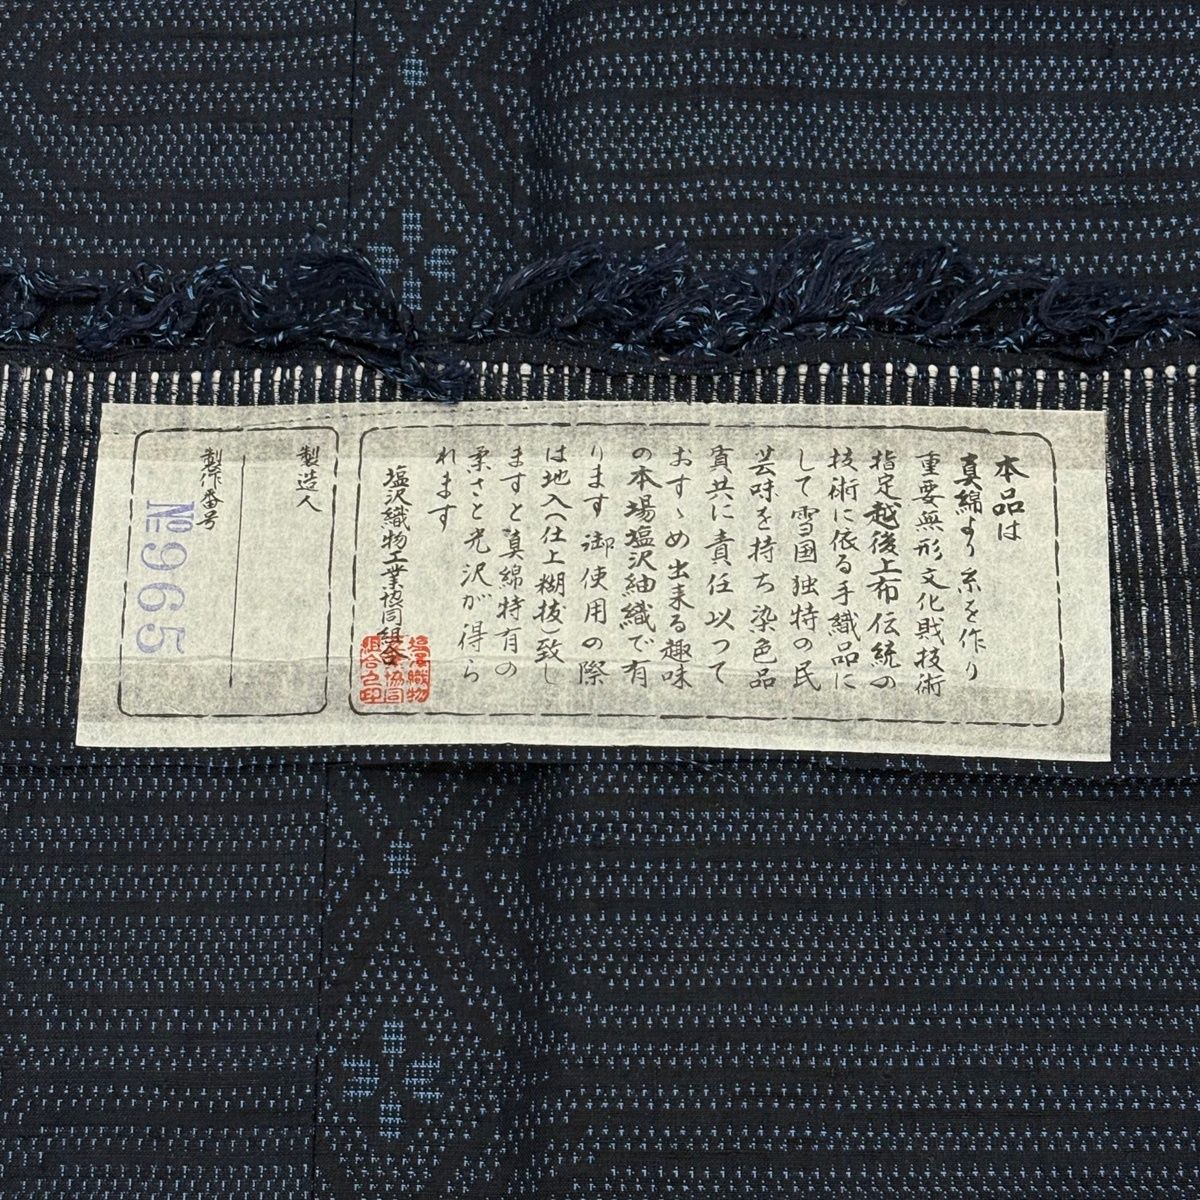 本品は
真綿より糸を作り
重要無形文化財技術
指定越後上布伝統の
技術に依る手織品に
して雪国独特の民
芸味を持ち染色品
質共に責任以つて
おすゝめ出来る趣味
の本場塩沢紬織で有
ります御使用の際
は地入(仕上糊抜)致し
ますと真綿特有の
柔さと光沢が得ら
れます
塩沢織物工業協同組合
塩澤織物
工業協同
組合之印
製造人
製作番号
№965